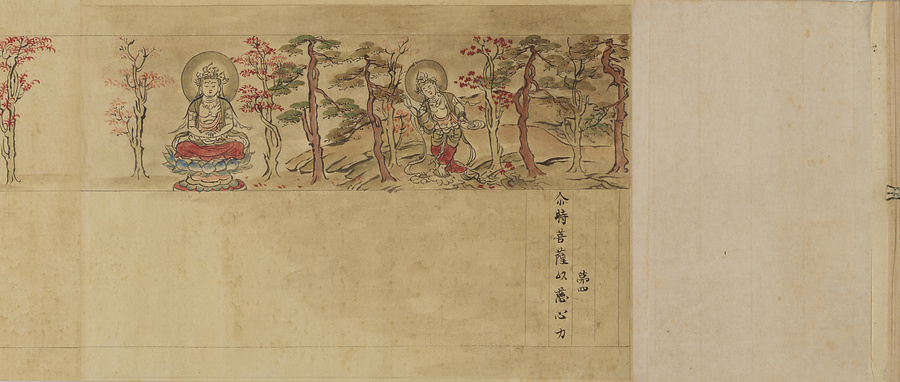 第四
尒時菩薩以慈心力